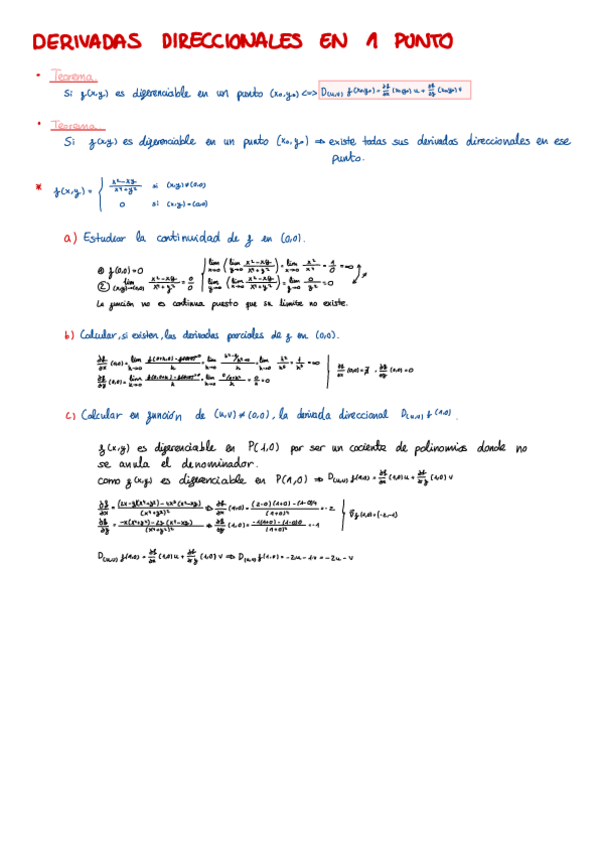 DERIVADAS DIRECCIONALES EN 1 PUNTO
• Teorema
Si f(x,y) es diferenciable en un punto (x₀,y₀) <=> D(u,v) f(x₀,y₀) = ∂f/∂x (x₀,y₀) u + ∂f/∂y (x₀,y₀) v
• Teorema
Si f(x,y) es diferenciable en un punto (x₀,y₀) ⇒ existe todas sus derivadas direccionales en ese
punto.
* f(x,y) = { (x²-xy)/(x⁴+y²) si (x,y)≠(0,0)
0 si (x,y)=(0,0)
a) Estudiar la continuidad de f en (0,0).
① f(0,0)=0
② lim (x,y)→(0,0) (x²-xy)/(x⁴+y²) = 0/0 { lim x→0 ( lim y→0 (x²-xy)/(x⁴+y²) ) = lim x→0 x²/x⁴ = 1/0 = ∞
lim y→0 ( lim x→0 (x²-xy)/(x⁴+y²) ) = lim y→0 0/y² = 0
La función no es continua puesto que su límite no existe.
b) Calcular, si existen, las derivadas parciales de f en (0,0).
∂f/∂x (0,0) = lim h→0
∂f/∂y (0,0) = lim = 0/h = 0
∂f/∂x (0,0) = ∄, ∂f/∂y (0,0) = 0
c) Calcular en función de (u,v)≠(0,0), la derivada direccional D(u,v) f(1,0).
f(x,y) es diferenciable en P(1,0) por ser un cociente de polinomios donde no
se anula el denominador.
como f(x,y) es diferenciable en P(1,0) ⇒ D(u,v) f(1,0) = ∂f/∂x (1,0) u + ∂f/∂y (1,0) v
∂f/∂x = ((2x-y)(x⁴+y²) - 4x³(x²-xy))/(x⁴+y²)² ⇒ ∂f/∂x (1,0) = ((2-0)(1+0) - (1-0)4)/(1+0)² = -2
∂f/∂y = (-x(x⁴+y²) - 2y(x²-xy))/(x⁴+y²)² ⇒ ∂f/∂y (1,0) = (-1(1+0) - (1-0)0)/(1+0)² = -1
∇f(1,0) = (-2,-1)
D(u,v) f(1,0) = ∂f/∂x (1,0) u + ∂f/∂y (1,0) v ⇒ D(u,v) f(1,0) = -2u - 1v = -2u - v